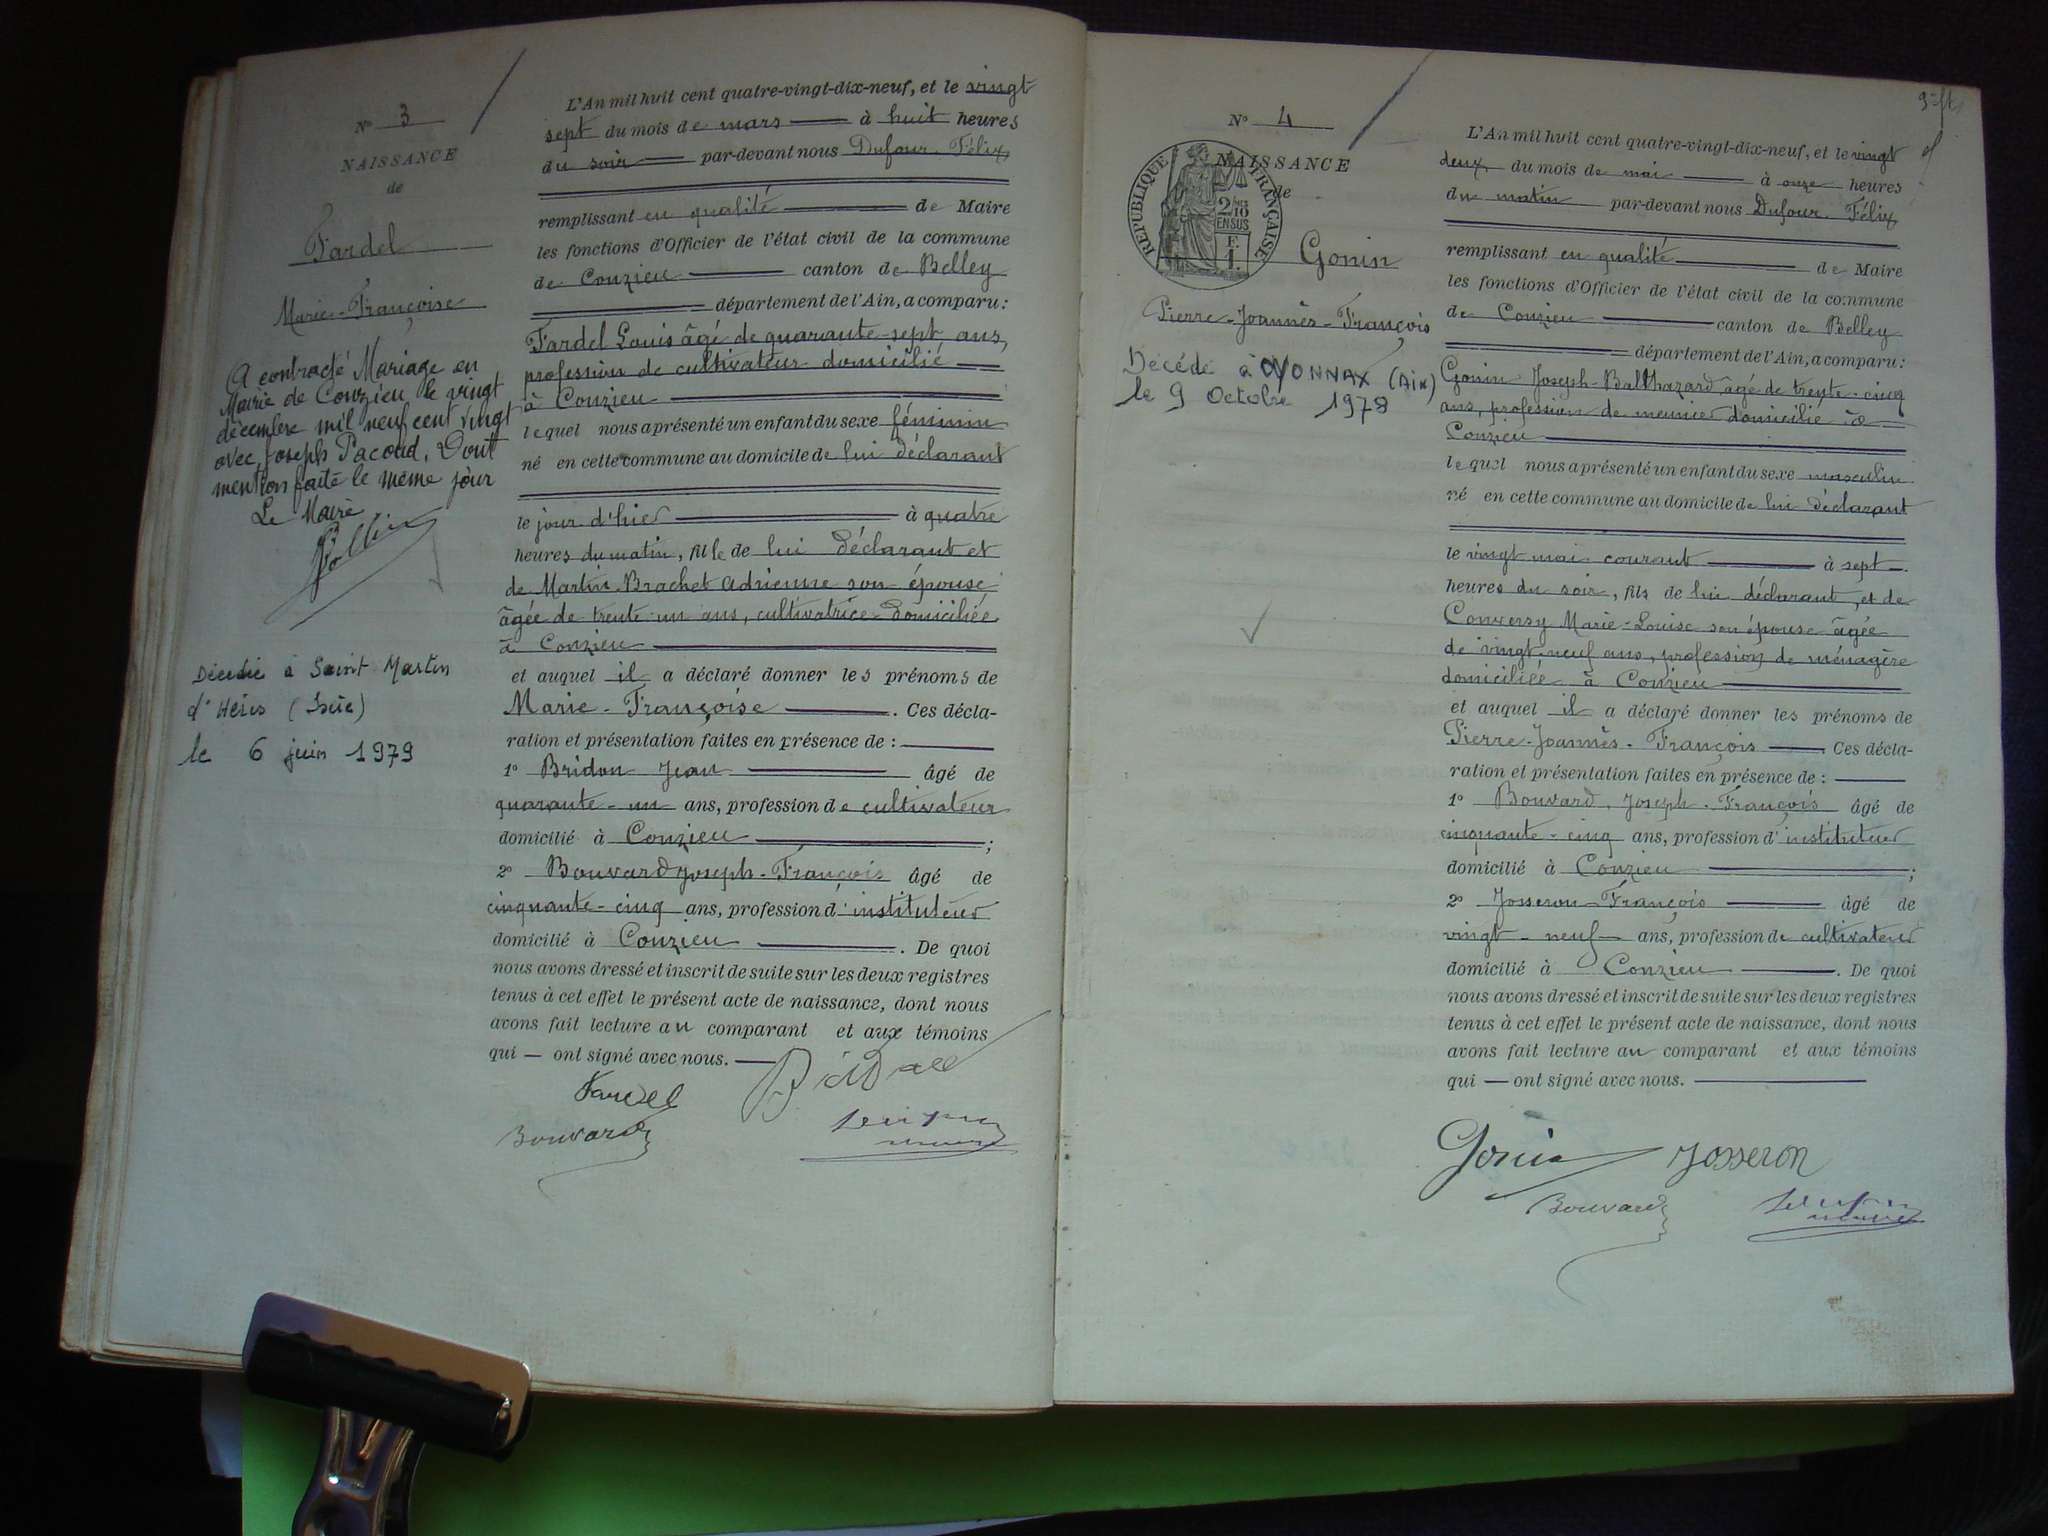 N° 3
NAISSANCE
de
Fardel
Marie-Françoise
A contracté Mariage en
Mairie de Conzieu le vingt
décembre mil neuf cent vingt
avec Joseph Pacoud. Dont
mention faite le même jour
Le Maire
Décédée à Saint Martin
d'Hères (Isère)
le 6 juin 1979
L'An mil huit cent quatre-vingt-dix-neuf, et le vingt
sept du mois de mars à huit heures
du soir par-devant nous Dufour Félix,
remplissant en qualité de Maire
les fonctions d'Officier de l'état civil de la commune
de Conzieu canton de Belley
département de l'Ain, a comparu :
Fardel Louis âgé de quarante-sept ans,
profession de cultivateur domicilié
à Conzieu
lequel nous a présenté un enfant du sexe féminin
né en cette commune au domicile de lui déclarant
le jour d'hier à quatre
heures du matin, fille de lui déclarant et
de Martin-Brachet Adrienne son épouse
âgée de trente-un ans, cultivatrice domiciliée
à Conzieu
et auquel il a déclaré donner les prénoms de
Marie-Françoise. Ces décla-
ration et présentation faites en présence de :
1° Bridon Jean âgé de
quarante-un ans, profession de cultivateur
domicilié à Conzieu ;
2° Bouvard Joseph-François âgé de
cinquante-cinq ans, profession d'instituteur
domicilié à Conzieu. De quoi
nous avons dressé et inscrit de suite sur les deux registres
tenus à cet effet le présent acte de naissance, dont nous
avons fait lecture au comparant et aux témoins
qui — ont signé avec nous.
Fardel
Bouvard
N° 4
NAISSANCE
de
RÉPUBLIQUE FRANÇAISE
2/10 EN SUS
Gonin
Pierre-Joannès-François
Décédé à OYONNAX (Ain)
le 9 Octobre 1978
L'An mil huit cent quatre-vingt-dix-neuf, et le vingt
deux du mois de mai à onze heures
du matin par-devant nous Dufour Félix
remplissant en qualité de Maire
les fonctions d'Officier de l'état civil de la commune
de Conzieu canton de Belley
département de l'Ain, a comparu :
Gonin Joseph-Balthazard âgé de trente-cinq
ans, profession de meunier domicilié à
Conzieu
lequel nous a présenté un enfant du sexe masculin
né en cette commune au domicile de lui déclarant
le vingt mai courant à sept
heures du soir, fils de lui déclarant, et de
Conversy Marie-Louise son épouse âgée
de vingt-neuf ans, profession de ménagère
domiciliée à Conzieu
et auquel il a déclaré donner les prénoms de
Pierre-Joannès-François Ces décla-
ration et présentation faites en présence de :
1° Bouvard Joseph-François âgé de
cinquante-cinq ans, profession d'instituteur
domicilié à Conzieu ;
2° Josseron François âgé de
vingt-neuf ans, profession de cultivateur
domicilié à Conzieu. De quoi
nous avons dressé et inscrit de suite sur les deux registres
tenus à cet effet le présent acte de naissance, dont nous
avons fait lecture au comparant et aux témoins
qui — ont signé avec nous.
Gonin Josseron
Bouvard